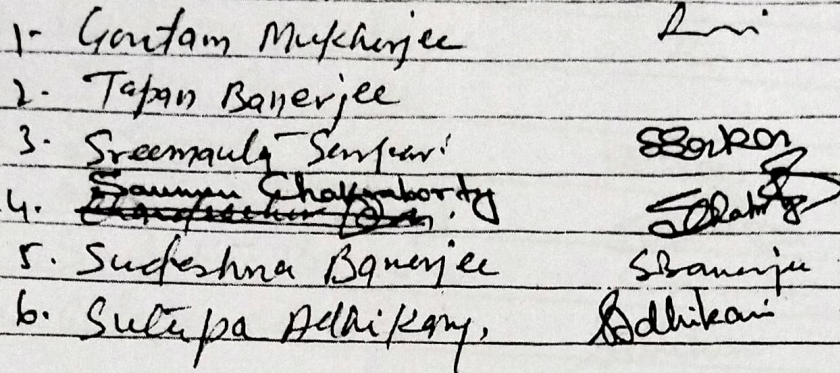 1- Goutam Mukherjee
2. Tapan Banerjee
3. Sreemanly SSarkar
4. Soumen Chakraborty
5. Sudeshna Banerjee SBanerjee
6. Sutupa Adhikary, SAdhikari